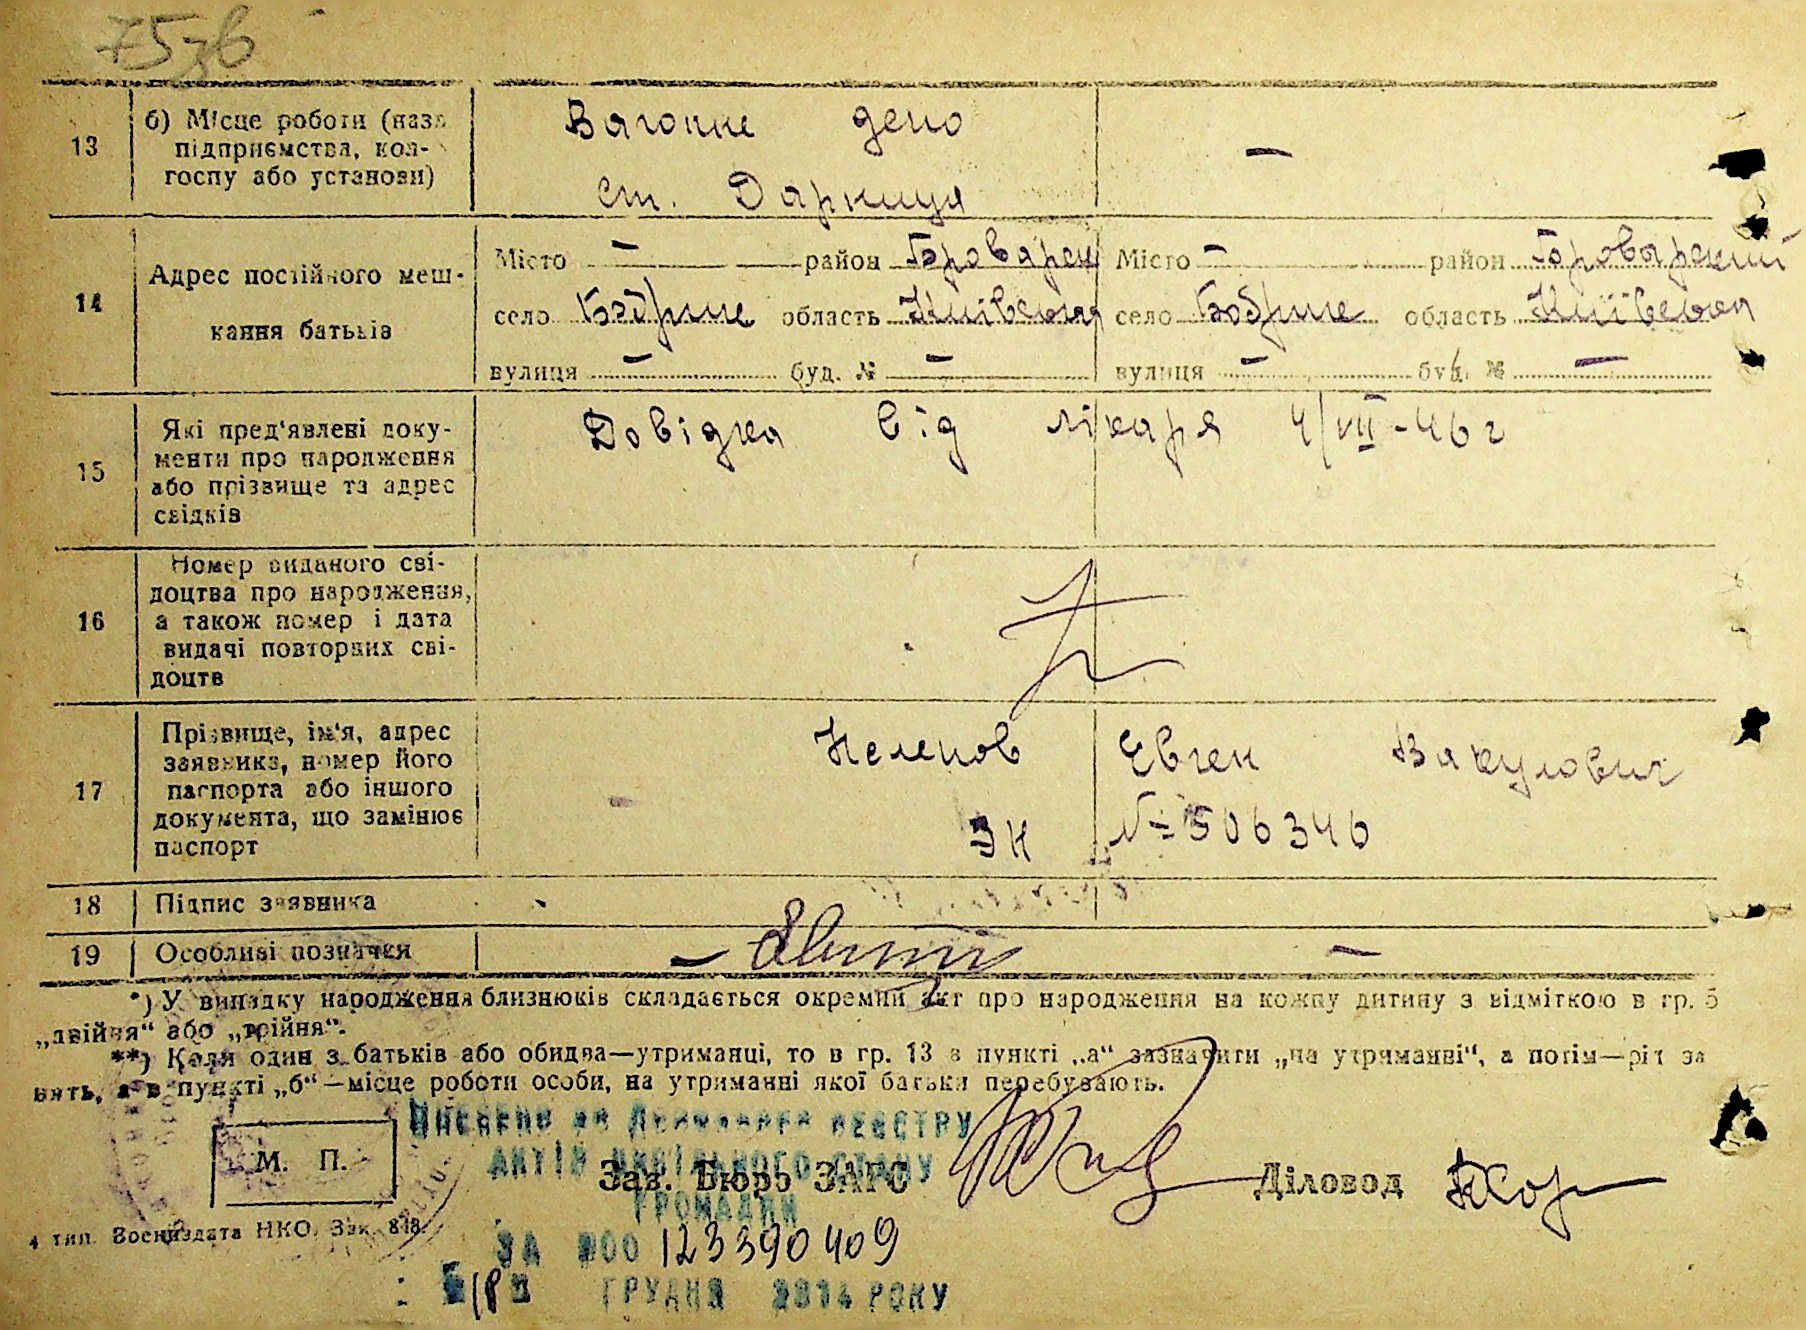 13
б) Місце роботи (назв
підприємства, кол-
госпу або установи)
Вагонне депо
ст. Дарниця
—
14
Адрес постійного меш-
кання батьків
Місто — район Броварськ
село Бобрик область Київська
вулиця — буд. № —
Місто — район Броварський
село Бобрик область Київська
вулиця — буд. № —
15
Які пред'явлені доку-
менти про народження
або прізвище та адрес
свідків
Довідка від лікаря 4/VIII-46 г
16
Номер виданого сві-
доцтва про народження,
а також номер і дата
видачі повторних сві-
доцтв
17
Прізвище, ім'я, адрес
заявника, номер його
паспорта або іншого
документа, що замінює
паспорт
Євген Вакулович
№ 506346
18
Підпис заявника
19
Особливі позначки
— —
*) У випадку народження близнюків складається окремий акт про народження на кожну дитину з відміткою в гр. 5
„двійня“ або „трійня“.
**) Коли один з батьків або обидва—утриманці, то в гр. 13 в пункті „а“ зазначити „на утриманні“, а потім—рід за
нять, а в пункті „б“—місце роботи особи, на утриманні якої батьки перебувають.
М. П.
РЕЄСТРУ
АКТІВ ЦИВІЛЬНОГО СТАНУ
ГРОМАДЯН
Зав. Бюро ЗАГС
Діловод
4 тип. Воениздата НКО. Зак. 848.
ЗА №00 123390409
ГРУДНЯ 2014 РОКУ